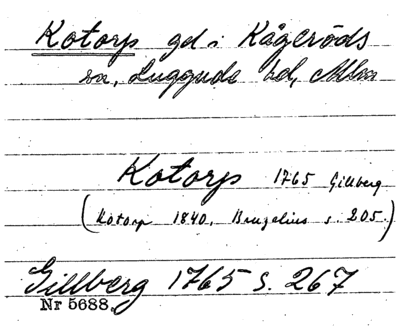 Kotorp gd i Kågeröds
sn, Luggude hd, Mlm
Kotorp 1765 Gillberg
(Kotorp 1840, Bruzelius s. 205.)
Gillberg 1765 S. 267
Nr 5688.